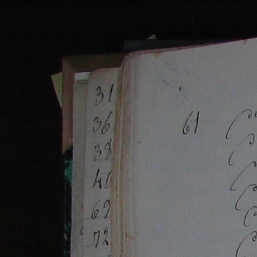 31
36
38
40
69
72
61